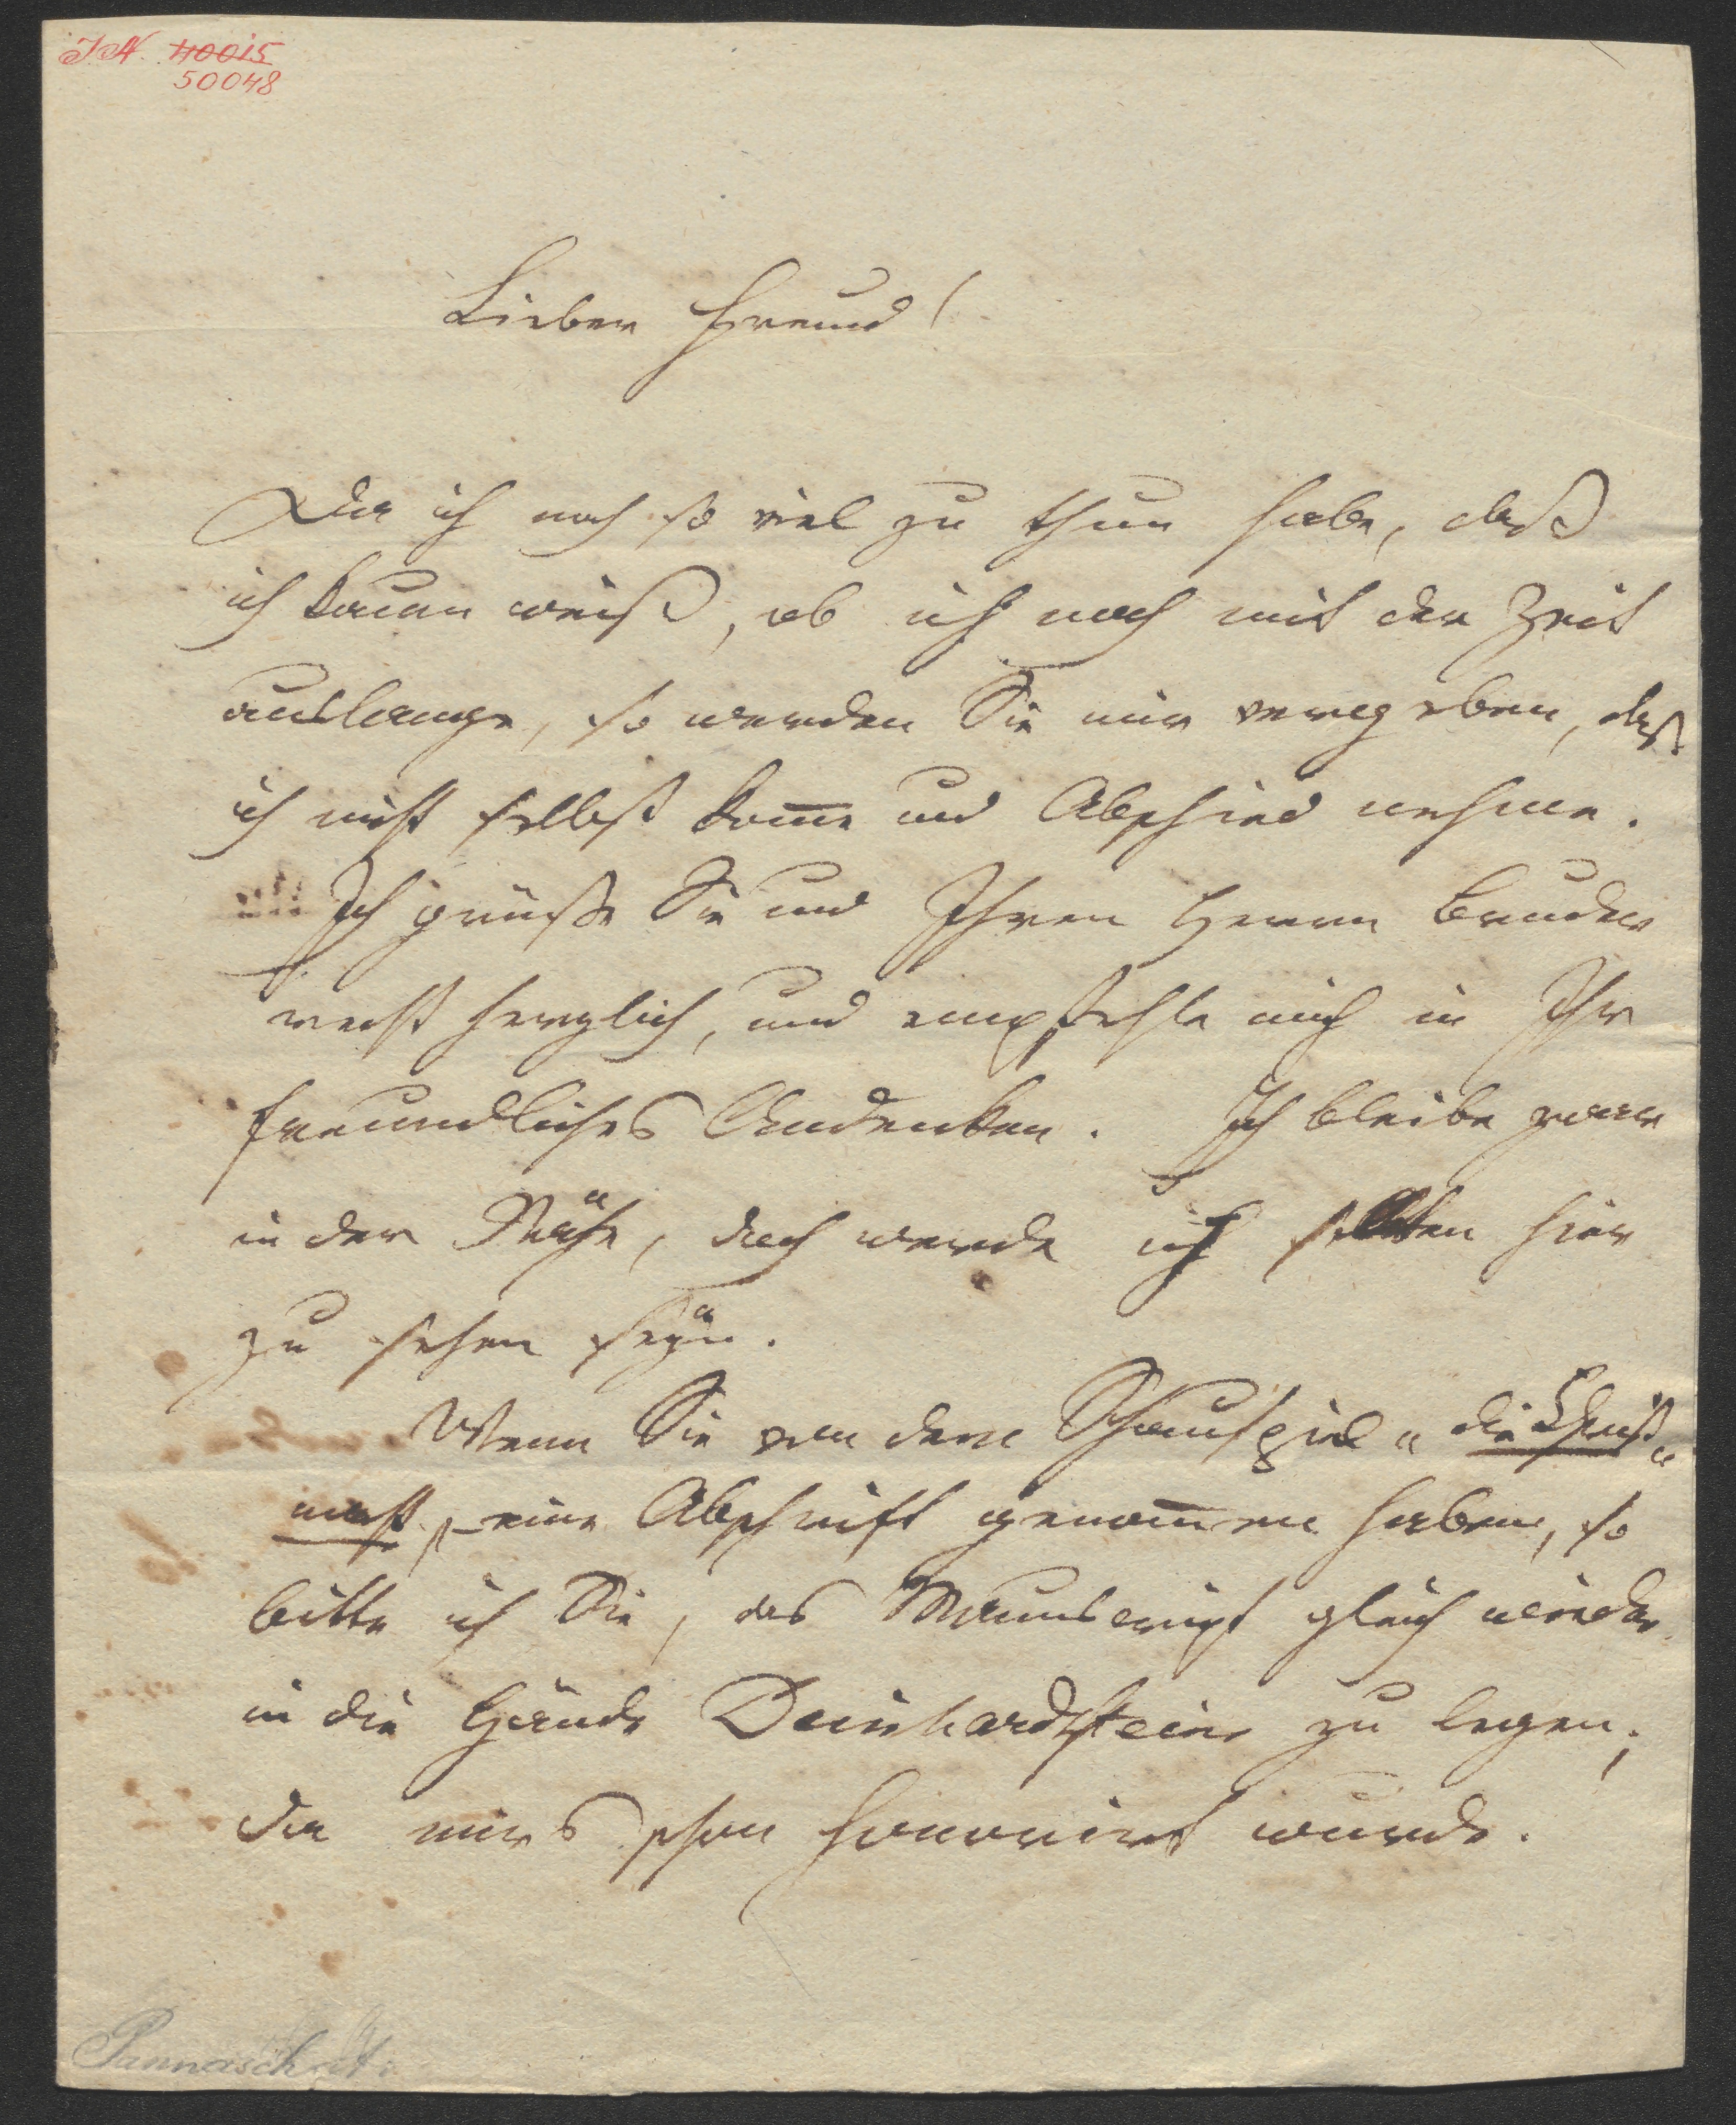 I.N. 40015
50048
Lieber Freund!
Da ich noch so viel zu thun habe, daß
ich kaum weiß, ob ich noch mit der Zeit
auslange, so werden Sie mir vergeben, daß
ich nicht selbst kom̅e und Abschied nehme.
Ich grüße Sie und Ihren Herrn Bruder
recht herzlich, und empfehle mich in Ihr
freundliches Andenken. Ich bleibe zwar
in der Nähe, doch werde ich selten hier
zu sehen seÿn.
Wenn Sie von dem Schauspiel „die Christ„
nacht„ eine Abschrift genom̅en haben, so
bitte ich Sie, das Manuscript gleich wieder
in die Hände Deinhardsteins zu legen;
da mirs schon honorirt wurde.
Pannasch A.